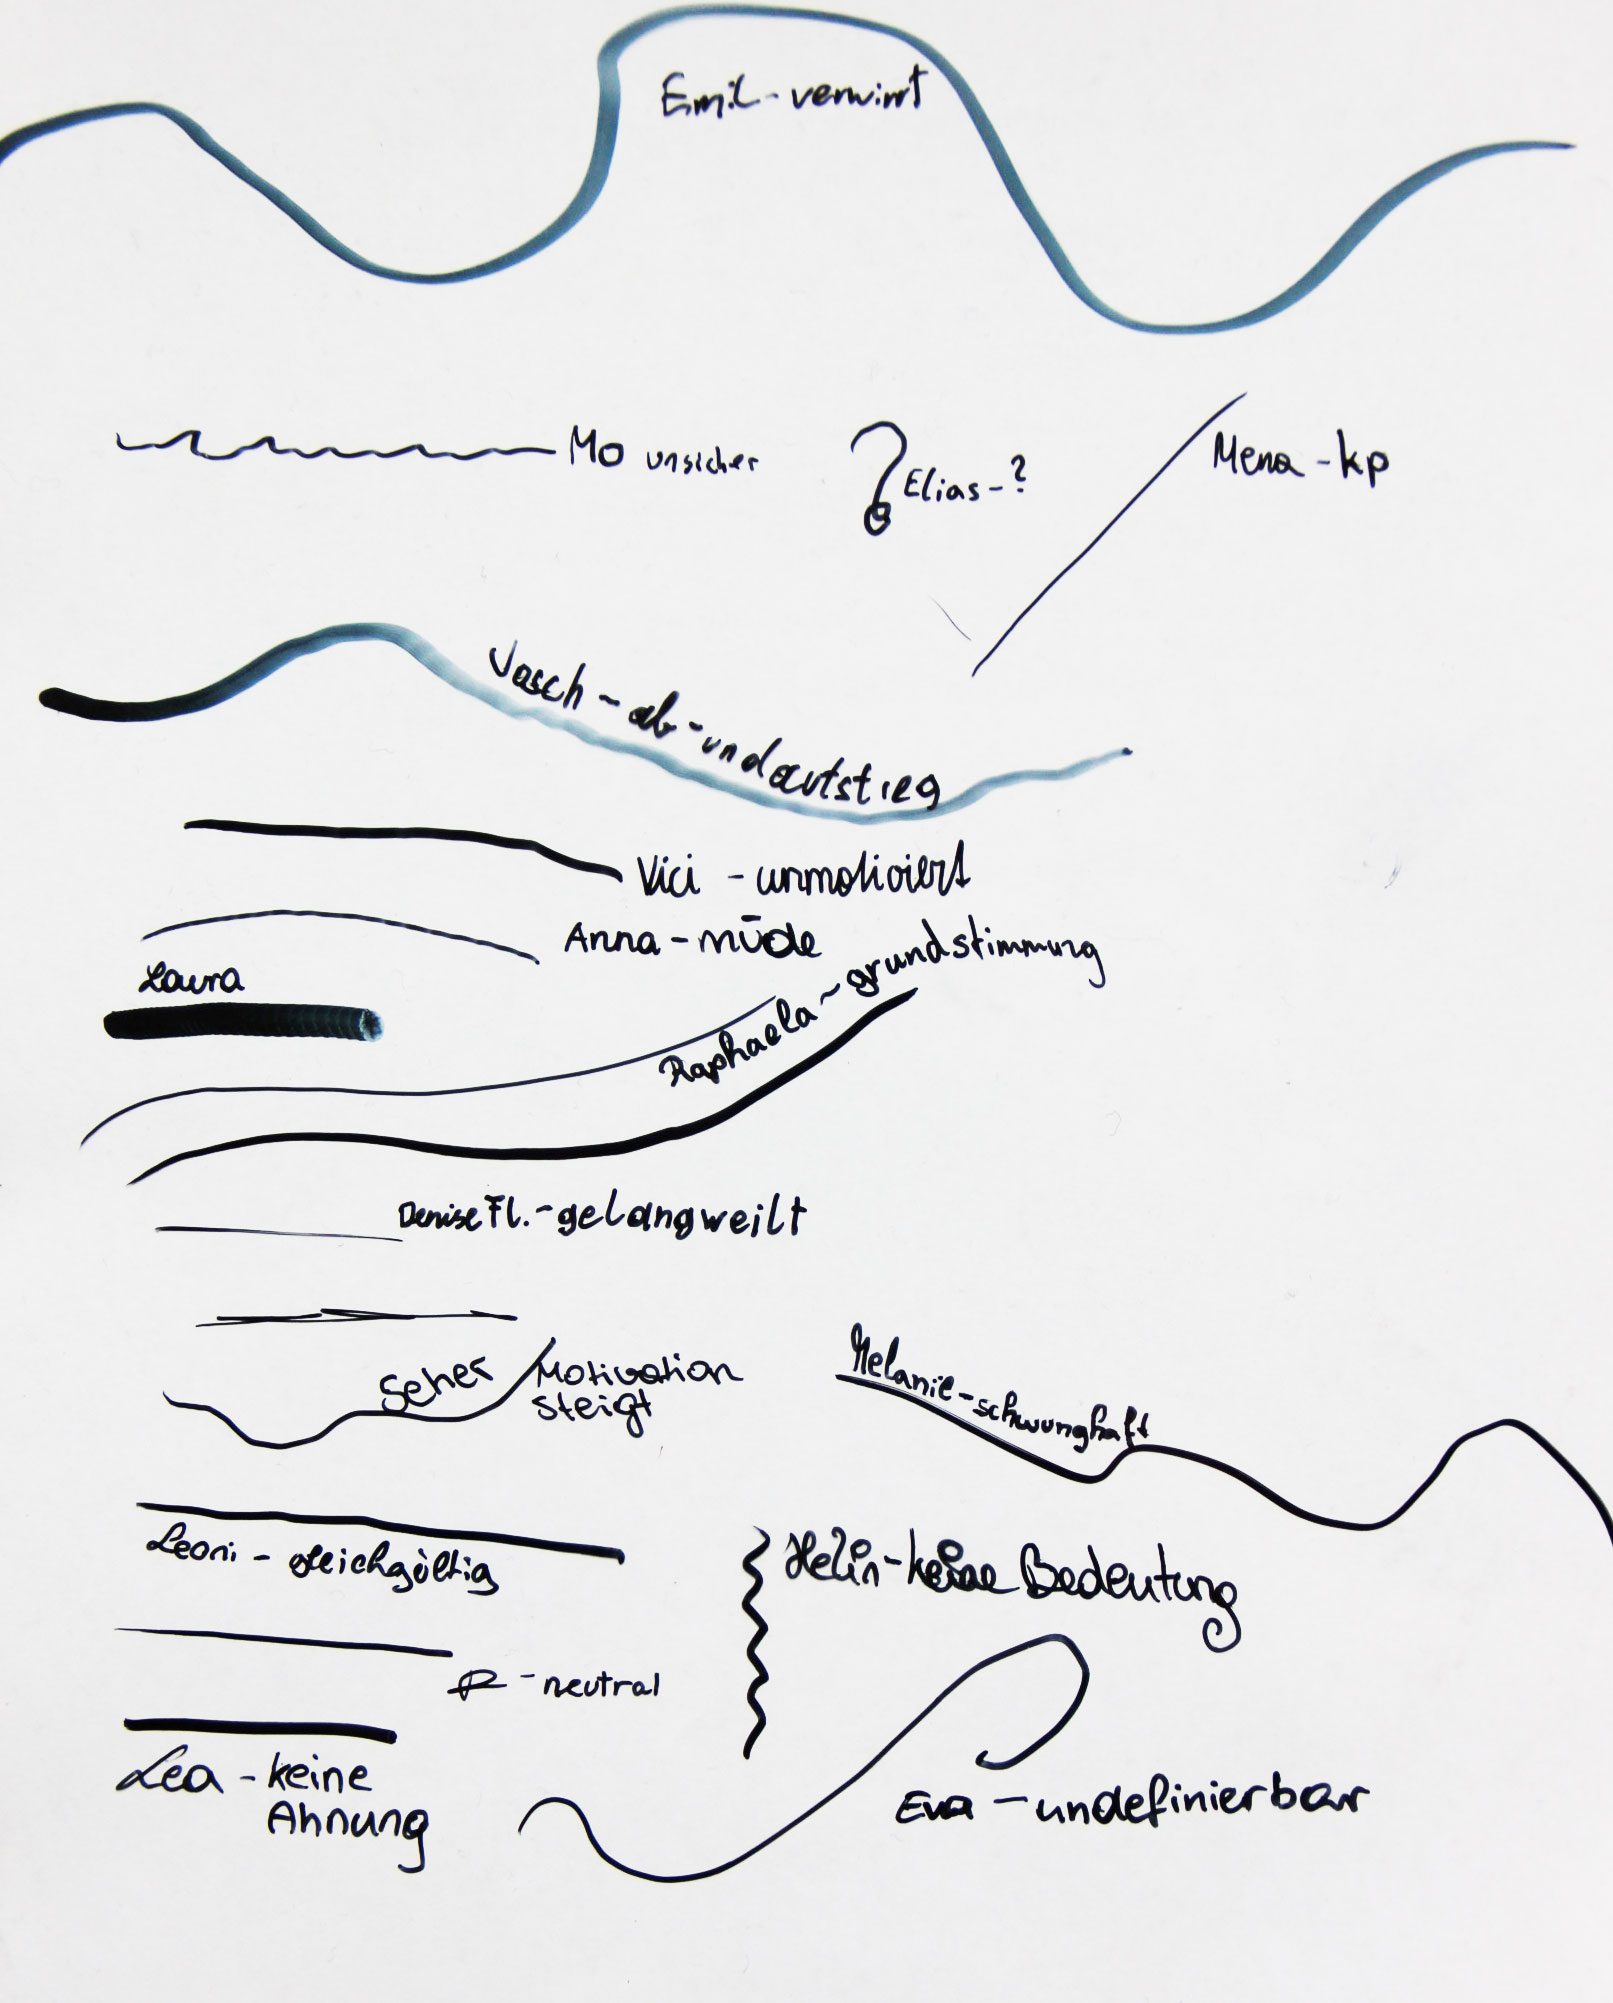 Emil - verwirrt
Mo unsicher
Elias - ?
Mena - kp
Jasch - ab - und aufstieg
Vici - unmotiviert
Anna - müde
Laura
Raphaela - grundstimmung
Denise Fl. - gelangweilt
Seher Motivation
steigt
Melanie - schwunghaft
Leoni - gleichgültig
Helin - keine Bedeutung
- neutral
Lea - keine
Ahnung
Eva - undefinierbar